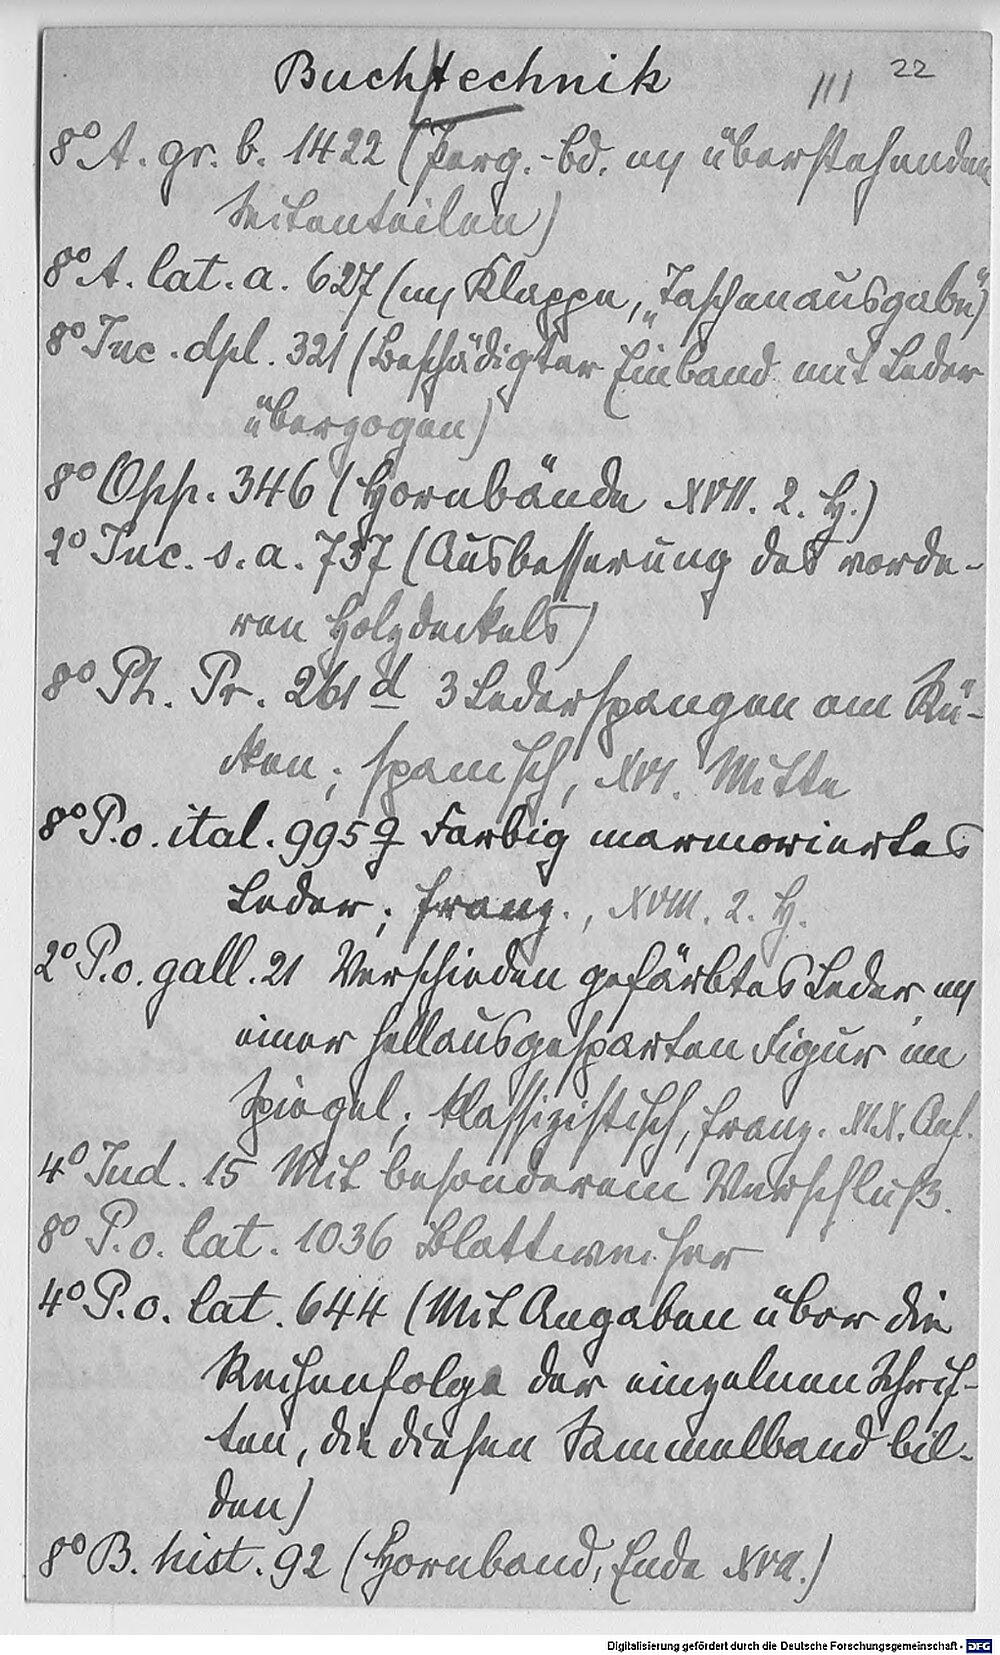 Buch/technik III 22
8° A. gr. b. 1422 (Perg.-bd. m überstehenden
Seitenteilen)
8° A. lat. a. 627 (m Klappe, „Taschenausgabe")
8° Inc. dpl. 321 (Beschädigter Einband mit Leder
überzogen)
8° Opp. 346 (Hornbände XVII. 2. H.)
2° Inc. s. a. 737 (Ausbesserung des vorde-
ren Holzdeckels)
8° Ph. Pr. 261 d 3 Lederspangen am Rü-
cken; spanisch, XVI. Mitte
8° P.o. ital. 995 q Farbig marmoriertes
Leder; franz., XVIII. 2. H.
2° P.o. gall. 21 Verschieden gefärbtes Leder m
einer hellausgesparten Figur im
Spiegel; klassizistisch, franz. XIX. Anf.
4° Jud. 15 Mit besonderem Verschluß.
8° P.o. lat. 1036 Blattweiser
4° P.o. lat. 644 (Mit Angaben über die
Reihenfolge der einzelnen Schrif-
ten, die diesen Sammelband bil-
den)
8° B. hist. 92 (Hornband, Ende XVII.)
Digitalisierung gefördert durch die Deutsche Forschungsgemeinschaft - DFG